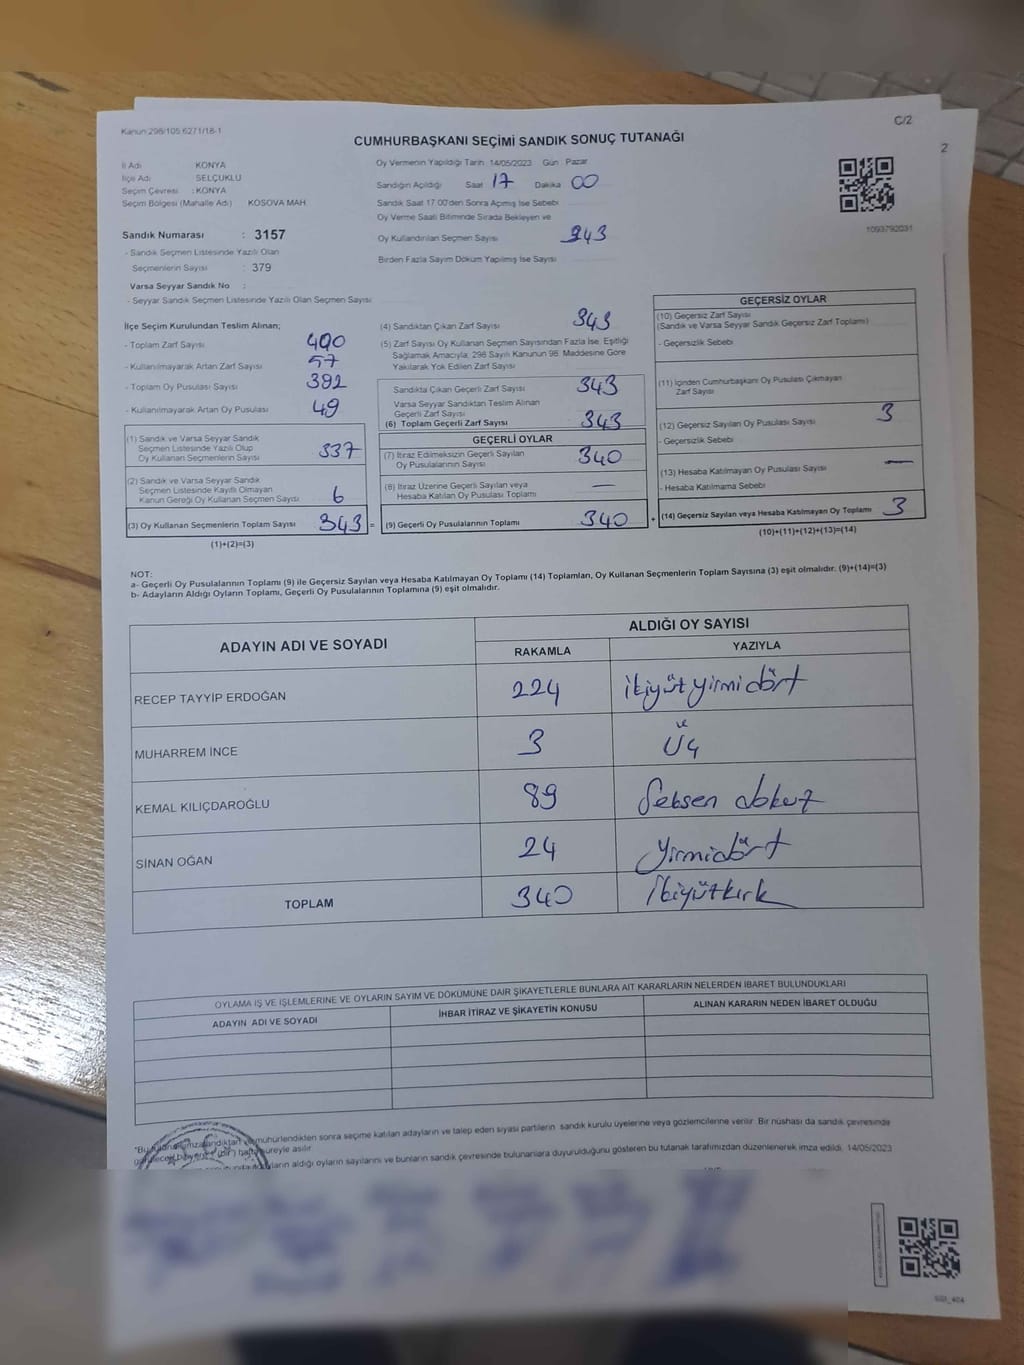 Kanun 298/105 6271/18-1
C/2
2
CUMHURBAŞKANI SEÇİMİ SANDIK SONUÇ TUTANAĞI
İl Adı KONYA
İlçe Adı SELÇUKLU
Seçim Çevresi : KONYA
Seçim Bölgesi (Mahalle Adı) KOSOVA MAH.
Oy Vermenin Yapıldığı Tarih 14/05/2023 Gün Pazar
Sandığın Açıldığı Saat 17 Dakika 00
Sandık Saat 17.00'den Sonra Açılmış İse Sebebi
Oy Verme Saati Bitiminde Sırada Bekleyen ve
Oy Kullandırılan Seçmen Sayısı 343
Birden Fazla Sayım Döküm Yapılmış İse Sayısı
1093792031
Sandık Numarası : 3157
- Sandık Seçmen Listesinde Yazılı Olan
Seçmenlerin Sayısı : 379
Varsa Seyyar Sandık No :
- Seyyar Sandık Seçmen Listesinde Yazılı Olan Seçmen Sayısı
İlçe Seçim Kurulundan Teslim Alınan;
- Toplam Zarf Sayısı 400
- Kullanılmayarak Artan Zarf Sayısı 57
- Toplam Oy Pusulası Sayısı 392
- Kullanılmayarak Artan Oy Pusulası 49
(1) Sandık ve Varsa Seyyar Sandık
Seçmen Listesinde Yazılı Olup
Oy Kullanan Seçmenlerin Sayısı 337
(2) Sandık ve Varsa Seyyar Sandık
Seçmen Listesinde Kayıtlı Olmayan
Kanun Gereği Oy Kullanan Seçmen Sayısı 6
(3) Oy Kullanan Seçmenlerin Toplam Sayısı 343 =
(1)+(2)=(3)
(4) Sandıktan Çıkan Zarf Sayısı 343
(5) Zarf Sayısı Oy Kullanan Seçmen Sayısından Fazla İse, Eşitliği
Sağlamak Amacıyla, 298 Sayılı Kanunun 98. Maddesine Göre
Yakılarak Yok Edilen Zarf Sayısı
Sandıkta Çıkan Geçerli Zarf Sayısı 343
Varsa Seyyar Sandıktan Teslim Alınan
Geçerli Zarf Sayısı
(6) Toplam Geçerli Zarf Sayısı 343
GEÇERLİ OYLAR
(7) İtiraz Edilmeksizin Geçerli Sayılan
Oy Pusulalarının Sayısı 340
(8) İtiraz Üzerine Geçerli Sayılan veya
Hesaba Katılan Oy Pusulası Toplamı —
(9) Geçerli Oy Pusulalarının Toplamı 340 +
GEÇERSİZ OYLAR
(10) Geçersiz Zarf Sayısı
(Sandık ve Varsa Seyyar Sandık Geçersiz Zarf Toplamı)
- Geçersizlik Sebebi
(11) İçinden Cumhurbaşkanı Oy Pusulası Çıkmayan
Zarf Sayısı
(12) Geçersiz Sayılan Oy Pusulası Sayısı 3
- Geçersizlik Sebebi
(13) Hesaba Katılmayan Oy Pusulası Sayısı —
- Hesaba Katılmama Sebebi
(14) Geçersiz Sayılan veya Hesaba Katılmayan Oy Toplamı 3
(10)+(11)+(12)+(13)=(14)
NOT:
a- Geçerli Oy Pusulalarının Toplamı (9) ile Geçersiz Sayılan veya Hesaba Katılmayan Oy Toplamı (14) Toplamları, Oy Kullanan Seçmenlerin Toplam Sayısına (3) eşit olmalıdır. (9)+(14)=(3)
b- Adayların Aldığı Oyların Toplamı, Geçerli Oy Pusulalarının Toplamına (9) eşit olmalıdır.
ADAYIN ADI VE SOYADI
ALDIĞI OY SAYISI
RAKAMLA YAZIYLA
RECEP TAYYİP ERDOĞAN 224 ikiyüzyirmidört
MUHARREM İNCE 3 Üç
KEMAL KILIÇDAROĞLU 89 Seksen dokuz
SİNAN OĞAN 24 yirmidört
TOPLAM 340 ikiyüzkırk
OYLAMA İŞ VE İŞLEMLERİNE VE OYLARIN SAYIM VE DÖKÜMÜNE DAİR ŞİKAYETLERLE BUNLARA AİT KARARLARIN NELERDEN İBARET BULUNDUKLARI
ADAYIN ADI VE SOYADI İHBAR İTİRAZ VE ŞİKAYETİN KONUSU ALINAN KARARIN NEDEN İBARET OLDUĞU
mühürlendikten sonra seçime katılan adayların ve talep eden siyasi partilerin sandık kurulu üyelerine veya gözlemcilerine verilir. Bir nüshası da sandık çevresinde
süreyle asılır.
aldığı oyların sayılarını ve bunların sandık çevresinde bulunanlara duyurulduğunu gösteren bu tutanak tarafımızdan düzenlenerek imza edildi. 14/05/2023